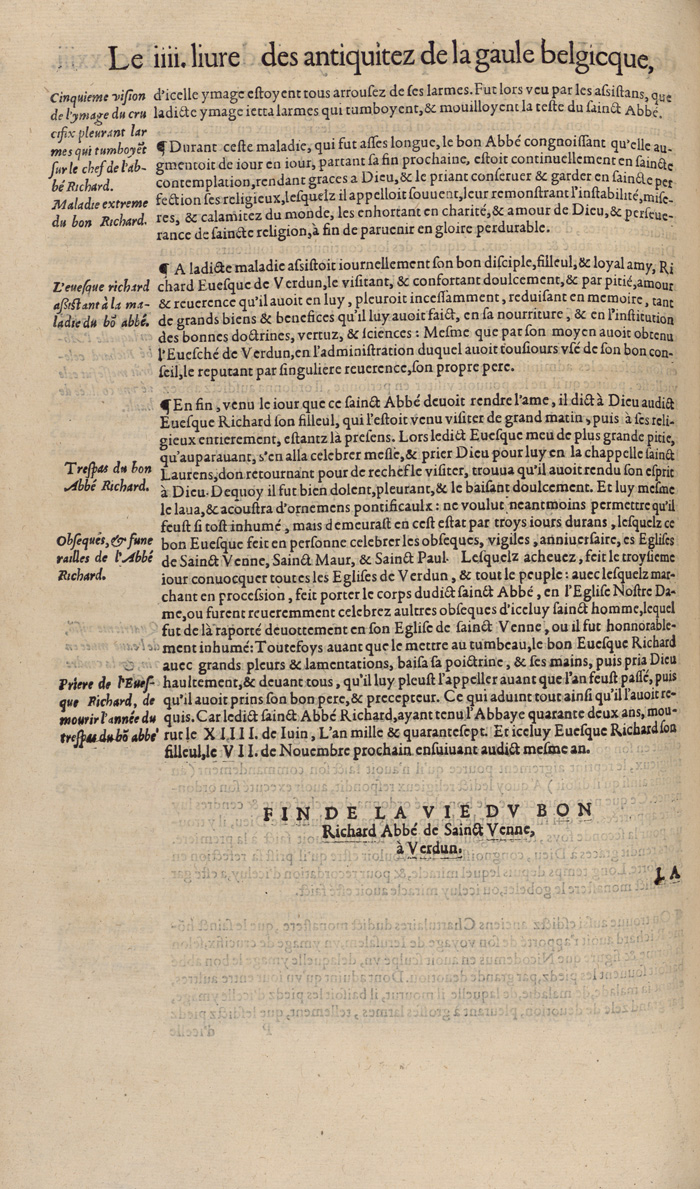 Le iiii. liure des antiquitez de la gaule belgicque,
Cinquieme vision
de l'ymage du cru
cifix pleurant lar
mes qui tumboyēt
sur le chef de l'ab-
bé Richard.
Maladie extreme
du bon Richard.
d'icelle ymage eſtoyent tous arrouſez de ſes larmes. Fut lors veu par les aſſiſtans, que
ladicte ymage ietta larmes qui tumboyent,& mouilloyent la teſte du ſainct Abbé.
¶ Durant ceſte maladie, qui fut aſſes longue, le bon Abbé congnoiſſant qu'elle au-
gmentoit de iour en iour, partant ſa fin prochaine, eſtoit continuellement en ſaincte
contemplation,rendant graces a Dieu,& le priant conſeruer & garder en ſaincte per
fection ſes religieux,leſquelz il appelloit ſouuent,leur remonſtrant l'inſtabilité,miſe-
res, & calamitez du monde, les enhortant en charité,& amour de Dieu,& perſeue-
rance de ſaincte religion,à fin de paruenir en gloire perdurable.
L'eueſque richard
aſsiſtant à la ma-
ladie du bō abbé.
¶ A ladicte maladie aſsiſtoit iournellement ſon bon diſciple,filleul,& loyal amy, Ri
chard Eueſque de Verdun,le viſitant, & confortant doulcement,& par pitié,amour
& reuerence qu'il auoit en luy, pleuroit inceſſamment, reduiſant en memoire, tant
de grands biens & benefices qu'il luy auoit faict, en ſa nourriture, & en l'inſtitution
des bonnes doctrines, vertuz, & ſciences : Meſme que par ſon moyen auoit obtenu
l'Eueſché de Verdun,en l'adminiſtration duquel auoit touſiours vſé de ſon bon con-
ſeil,le reputant par ſinguliere reuerence,ſon propre pere.
¶En fin, venu le iour que ce ſainct Abbé deuoit rendre l'ame, il dict à Dieu audict
Eueſque Richard ſon filleul, qui l'eſtoit venu viſiter de grand matin, puis à ſes reli-
gieux entierement, eſtantz là preſens. Lors ledict Eueſque meu de plus grande pitie,
qu'auparauant, s'en alla celebrer meſſe,& prier Dieu pour luy en la chappelle ſainct
Laurens,don retournant pour de rechefle viſiter, trouua qu'il auoit rendu ſon eſprit
à Dieu. Dequoy il fut bien dolent,pleurant,& le baiſant doulcement. Et luy meſme
le laua,& acouſtra d'ornemens pontificaulx : ne voulut neantmoins permettre qu'il
feuſt ſi toſt inhumé, mais demeuraſt en ceſt eſtat par troys iours durans, leſquelz ce
bon Eueſque feit en perſonne celebrer les obſeques, vigiles, anniuerſaire, es Egliſes
de Sainct Venne, Sainct Maur, & Sainct Paul. Leſquelz acheuez, feit le troyſieme
iour conuocquer toutes les Egliſes de Verdun, & tout le peuple : auec leſquelz mar-
chant en proceſsion, feit porter le corps dudict ſainct Abbé, en l'Egliſe Noſtre Da-
me,ou furent reueremment celebrez aultres obſeques d'iceluy ſainct homme,lequel
fut de là raporté deuottement en ſon Egliſe de ſainct Venne, ou il fut honnorable-
ment inhumé:Touteſoys auant que le mettre au tumbeau,le bon Eueſque Richard
auec grands pleurs & lamentations, baiſa ſa poictrine, & ſes mains, puis pria Dieu
haultement,& deuant tous, qu'il luy pleuſt l'appeller auant que l'an feuſt paſſé, puis
qu'il auoit prins ſon bon pere,& precepteur. Ce qui aduint tout ainſi qu'il l'auoit re-
quis. Car ledict ſainct Abbé Richard,ayant tenu l'Abbaye quarante deux ans, mou-
rut le XIIII. de Iuin, L'an mille & quaranteſept. Et iceluy Eueſque Richard ſon
filleul,le VII. de Nouembre prochain enſuiuant audict meſme an.
Treſpas du bon
Abbé Richard.
Obſeques, & fune
railles de l'Abbé
Richard.
Priere de l'Eueſ-
que Richard, de
mourir l'année du
treſpas du bō abbé
FIN DE LA VIE DV BON
Richard Abbé de Sainct Venne,
à Verdun.
LA